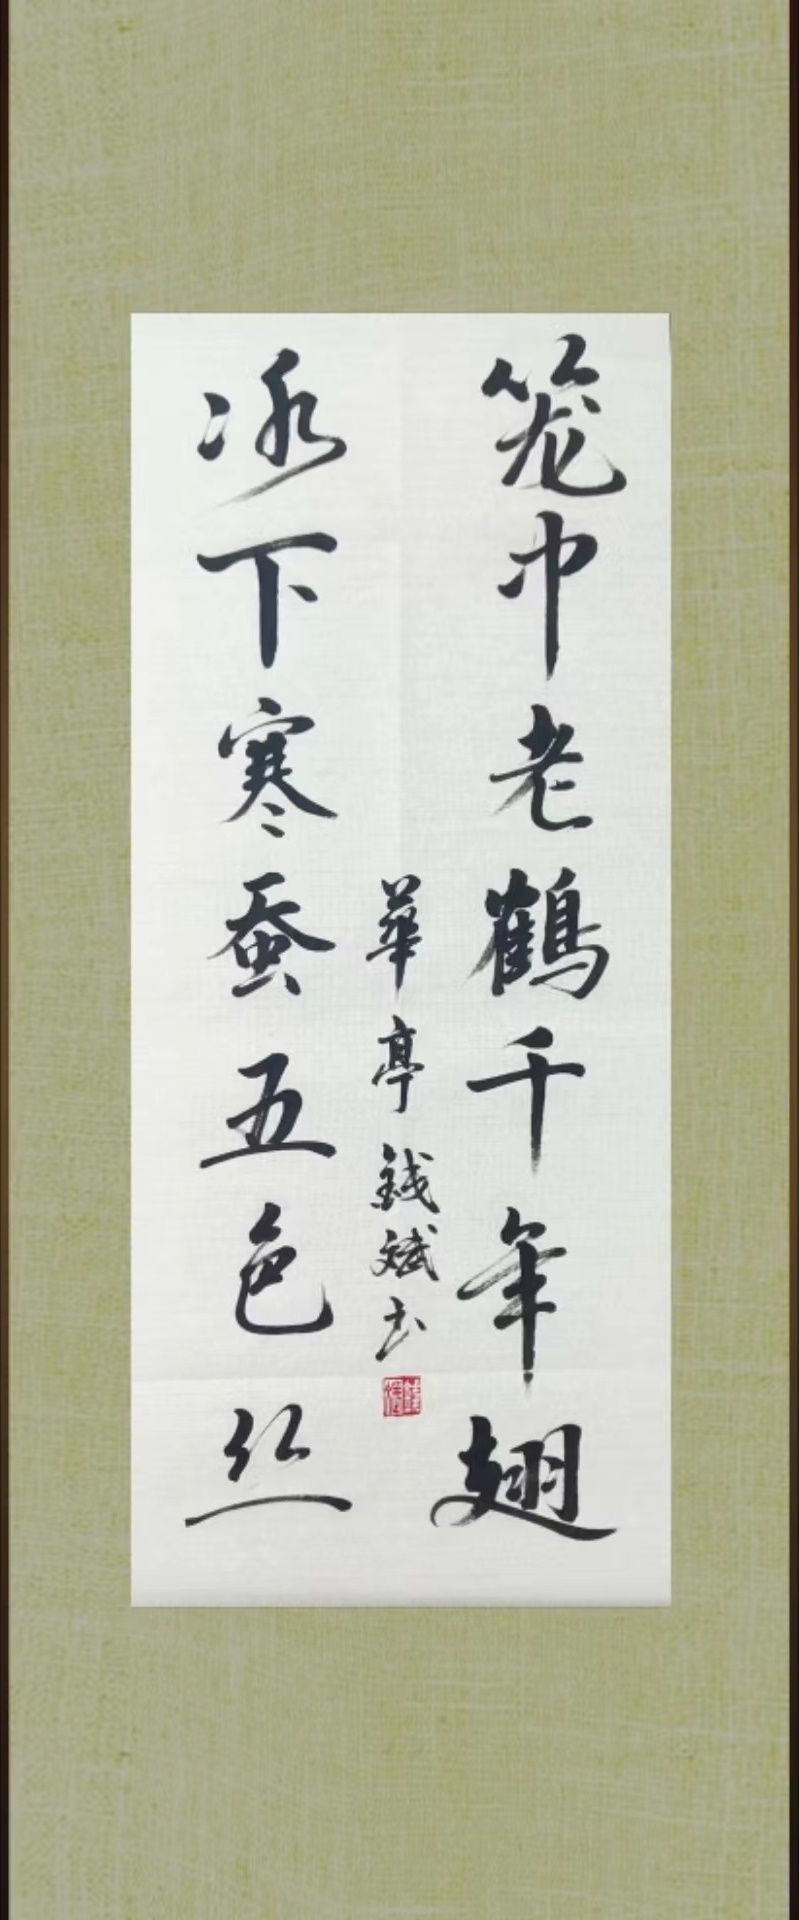 笼中老鶴千年翅
冰下寒蚕五色丝
華亭錢斌书